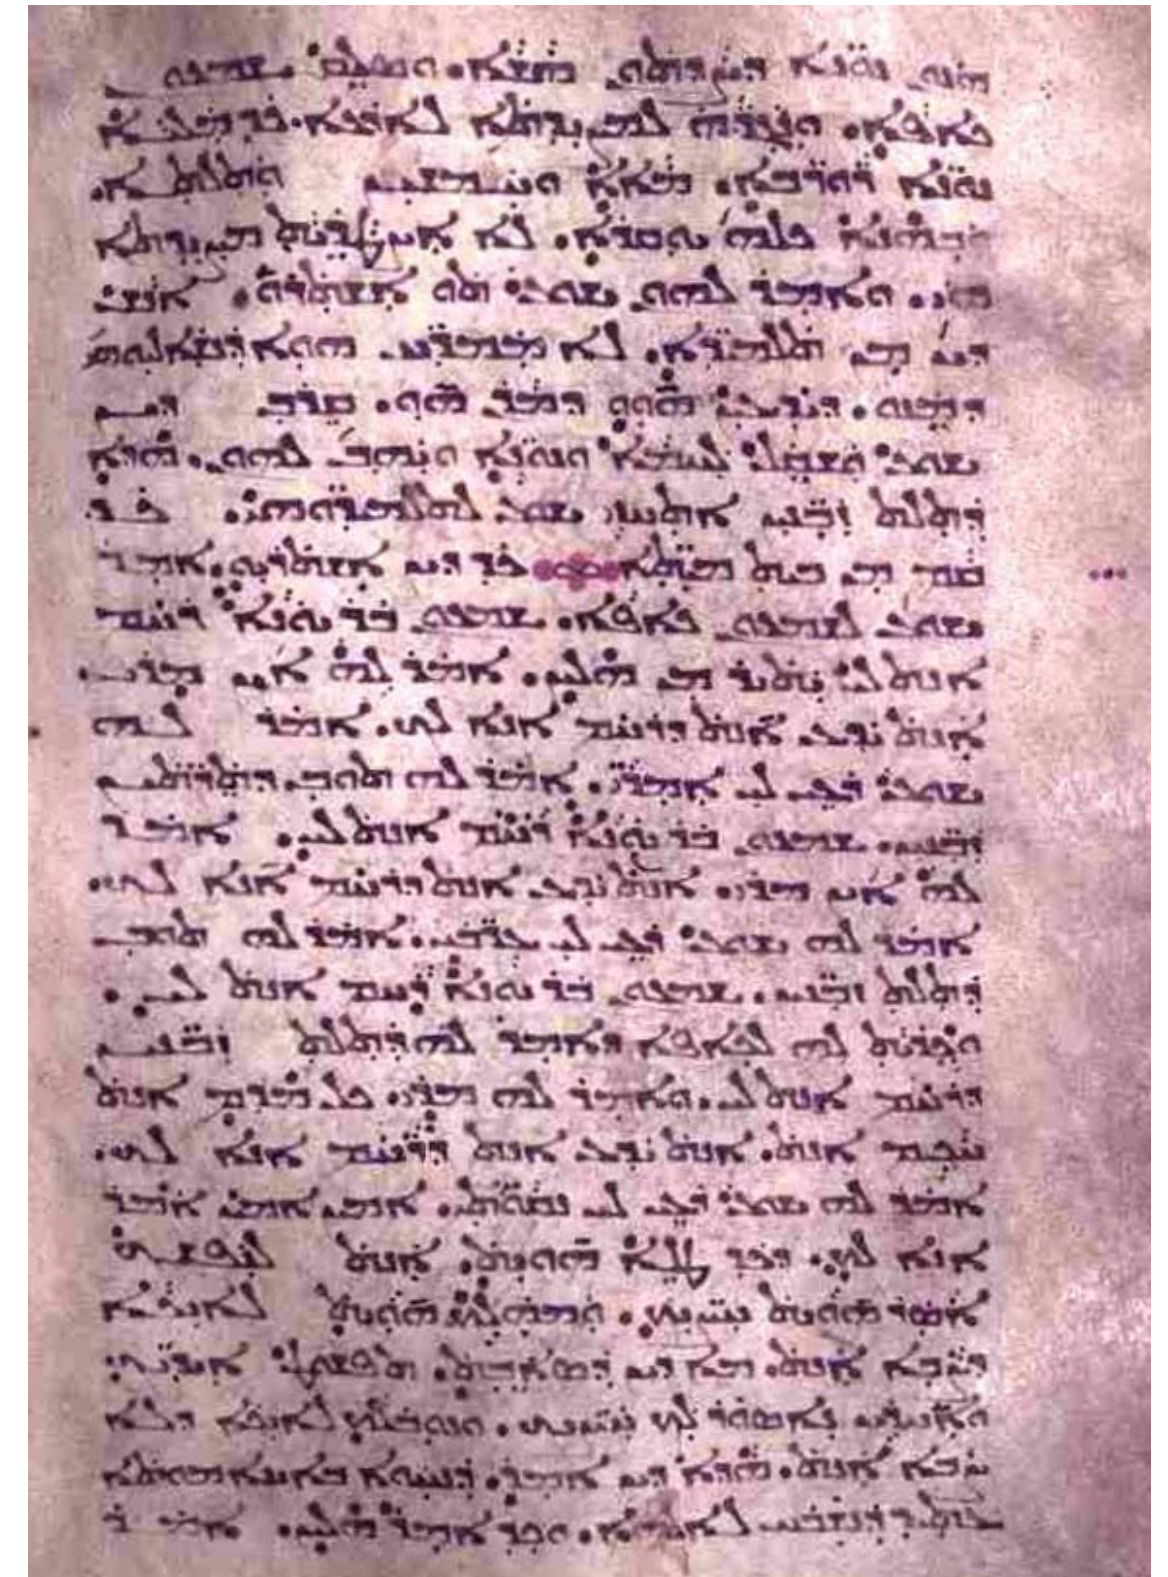 ܗܢܘܢ ܢܘܢܐ ܕܨܕܬܘܢ ܗܫܐ. ܘܣܠܩ ܫܡܥܘܢ
ܟܐܦܐ. ܘܢܓܕܗ ܠܡܨܝܕܬܐ ܠܐܪܥܐ. ܟܕ ܡܠܝܐ
ܢܘܢܐ ܪܘܪܒܐ. ܡܐܐ ܘܚܡܫܝܢ ܘܬܠܬܐ.
ܘܒܗܢܐ ܟܠܗ ܝܘܩܪܐ. ܠܐ ܐܨܛܪܝܬ ܡܨܝܕܬܐ
ܗܝ. ܘܐܡܪ ܠܗܘܢ ܝܫܘܥ ܬܘ ܐܫܬܪܘ. ܐܢܫ
ܕܝܢ ܡܢ ܬܠܡܝܕܐ. ܠܐ ܡܡܪܚ ܗܘܐ ܕܢܫܐܠܝܘܗܝ
ܕܡܢܘ. ܕܝܕܥܝܢ ܗܘܘ ܕܡܪܢ ܗܘ. ܩܪܒ ܕܝܢ
ܝܫܘܥ ܘܫܩܠ ܠܚܡܐ ܘܢܘܢܐ ܘܝܗܒ ܠܗܘܢ. ܗܕܐ
ܕܬܠܬ ܙܒܢܝܢ ܐܬܚܙܝ ܝܫܘܥ ܠܬܠܡܝܕܘܗܝ. ܟܕ
ܩܡ ܡܢ ܒܝܬ ܡܝܬܐ ܟܕ ܕܝܢ ܐܫܬܪܝܘ. ܐܡܪ
ܝܫܘܥ ܠܫܡܥܘܢ ܟܐܦܐ. ܫܡܥܘܢ ܒܪ ܝܘܢܐ ܪܚܡ
ܐܢܬ ܠܝ ܝܬܝܪ ܡܢ ܗܠܝܢ. ܐܡܪ ܠܗ ܐܝܢ ܡܪܝ.
ܐܢܬ ܝܕܥ ܐܢܬ ܕܪܚܡ ܐܢܐ ܠܟ. ܐܡܪ ܠܗ
ܝܫܘܥ ܪܥܝ ܠܝ ܐܡܪܝ. ܐܡܪ ܠܗ ܬܘܒ ܕܬܪܬܝܢ
ܙܒܢܝܢ. ܫܡܥܘܢ ܒܪ ܝܘܢܐ ܪܚܡ ܐܢܬ ܠܝ. ܐܡܪ
ܠܗ ܐܝܢ ܡܪܝ. ܐܢܬ ܝܕܥ ܐܢܬ ܕܪܚܡ ܐܢܐ ܠܟ.
ܐܡܪ ܠܗ ܝܫܘܥ ܪܥܝ ܠܝ ܥܪܒܝ. ܐܡܪ ܠܗ ܬܘܒ
ܕܬܠܬ ܙܒܢܝܢ. ܫܡܥܘܢ ܒܪ ܝܘܢܐ ܪܚܡ ܐܢܬ ܠܝ.
ܘܟܪܝܬ ܠܗ ܠܟܐܦܐ ܕܐܡܪ ܠܗ ܕܬܠܬ ܙܒܢܝܢ
ܕܪܚܡ ܐܢܬ ܠܝ. ܘܐܡܪ ܠܗ ܡܪܝ. ܟܠ ܡܕܡ ܐܢܬ
ܚܟܡ ܐܢܬ. ܐܢܬ ܝܕܥ ܐܢܬ ܕܪܚܡ ܐܢܐ ܠܟ.
ܐܡܪ ܠܗ ܝܫܘܥ ܪܥܝ ܠܝ ܢܩܘܬܝ. ܐܡܝܢ ܐܡܝܢ ܐܡܪ
ܐܢܐ ܠܟ. ܕܟܕ ܛܠܐ ܗܘܝܬ. ܐܢܬ ܠܢܦܫܟ
ܐܣܪ ܗܘܝܬ ܚܨܝܟ. ܘܡܗܠܟ ܗܘܝܬ ܠܐܝܟܐ
ܕܨܒܐ ܐܢܬ. ܡܐ ܕܝܢ ܕܣܐܒܬ. ܬܦܫܘܛ ܐܝܕܝܟ
ܘܐܚܪܝܢ ܢܐܣܘܪ ܠܟ ܚܨܝܟ. ܘܢܘܒܠܟ ܠܐܝܟܐ ܕܠܐ
ܨܒܐ ܐܢܬ. ܗܕܐ ܕܝܢ ܐܡܪ. ܕܢܚܘܐ ܒܐܝܢܐ ܡܘܬܐ
ܥܬܝܕ ܕܢܫܒܚ ܠܐܠܗܐ. ܘܟܕ ܐܡܪ ܗܠܝܢ. ܐܡܪ